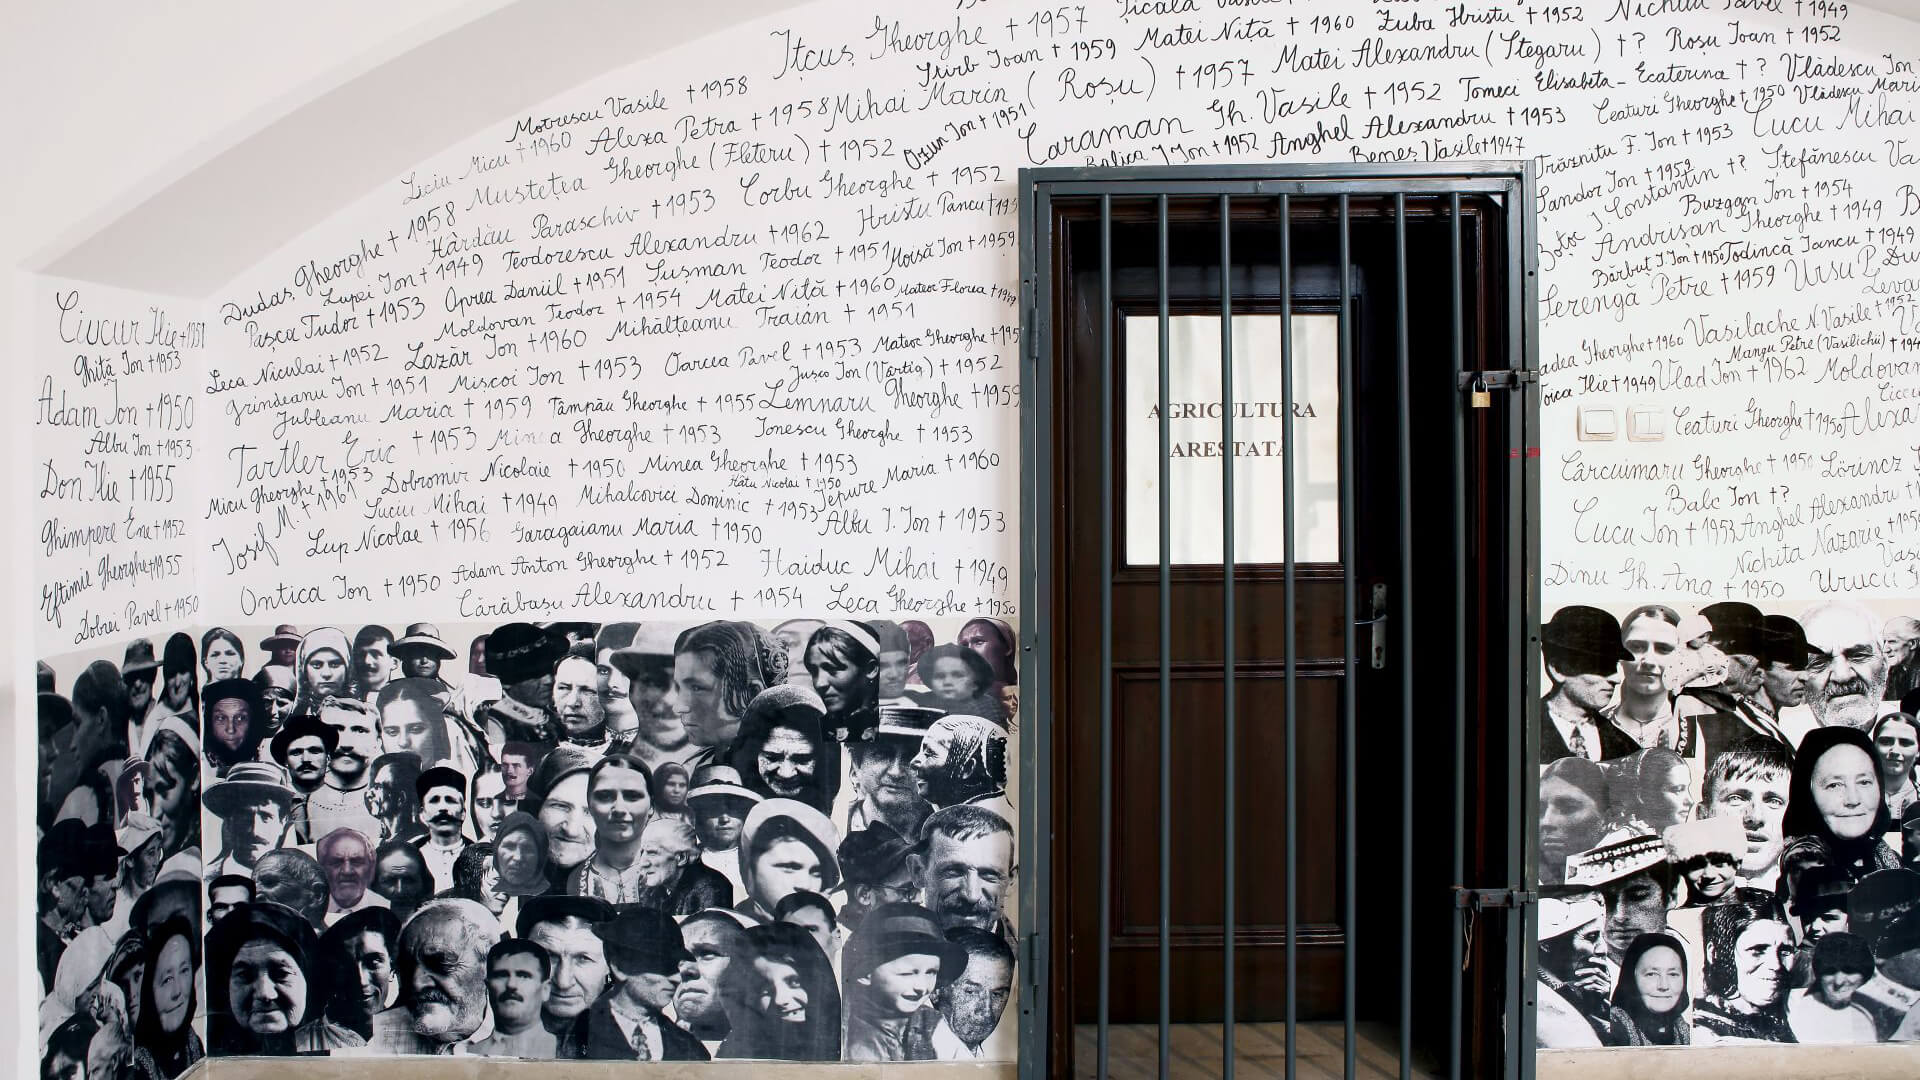 Ițcuș Gheorghe + 1957
Matei Niță + 1960 Zuba Hristu + 1952
+ 1949
Motrescu Vasile + 1958
Știrb Ioan + 1959
Matei Alexandru (Stegaru) + ? Roșu Ioan + 1952
Liciu Micu + 1960 Alexa Petra + 1958 Mihai Marin (Roșu) + 1957
Caraman Gh. Vasile + 1952 Tomeci Elisabeta-Ecaterina + ? Vlădescu Ion
Dudaș Gheorghe + 1958 Mustețea Gheorghe (Fleteru) + 1952 Ozun Ion + 1951
Balica I Ion + 1952 Anghel Alexandru + 1953 Ceaturi Gheorghe + 1950
Beneș Vasile + 1947
Hârdău Paraschiv + 1953 Corbu Gheorghe + 1952
Trăznitu F. Ion + 1953 Cucu Mihai
Lupei Ion + 1949 Teodorescu Alexandru + 1962 Hristu Pancu
Constantin + ? Ștefănescu
Pașca Tudor + 1953 Oprea Daniil + 1951 Șușman Teodor + 1951 Moisă Ion + 1959
Buzgan Ion + 1954
Andrișan Gheorghe + 1949
Ciucur Ilie + 1951
Moldovan Teodor + 1954 Matei Niță + 1960 Mateoc Florea
Bărbuț I. Ion + 1950 Todincă Iancu + 1949
Leca Niculai + 1952 Lazăr Ion + 1960 Mihălțeanu Traian + 1951
Șerengă Petre + 1959 Ursu P.
Ghiță Ion + 1953
Grindeanu Ion + 1951 Mișcoi Ion + 1953 Oarcea Pavel + 1953 Mateoc Gheorghe
Gheorghe + 1960 Vasilache N. Vasile + 1952
Adam Ion + 1950
Jubleanu Maria + 1959 Tâmpău Gheorghe + 1955 Jusco Ion (Vârtig) + 1952
Mangu Petre (Vasilichii)
Voica Ilie + 1949 Vlad Ion + 1962 Moldovan
Lemnaru Gheorghe + 1959
Albu Ion + 1953
Tartler Eric + 1953 Gheorghe + 1953 Ionescu Gheorghe + 1953
AGRICULTURA
ARESTATĂ
Ceaturi Gheorghe + 1950
Don Ilie + 1955
Micu Gheorghe + 1953 Dobromir Nicolaie + 1950 Minea Gheorghe + 1953
Cârcuimaru Gheorghe + 1950 Lörincz
Hâtu Nicolai + 1950 Iepure Maria + 1960
Balc Ion + ?
Iosif M. + 1961 Suciu Mihai + 1949 Mihalcovici Dominic + 1953
Cucu Ion + 1953 Anghel Alexandru
Ghimpere Ene + 1952
Lup Nicolae + 1956 Garagaianu Maria + 1950 Albu I. Ion + 1953
Nichita Nazarie
Eftimie Gheorghe + 1955
Ontica Ion + 1950 Adam Anton Gheorghe + 1952 Haiduc Mihai + 1949
Dinu Gh. Ana + 1950 Urucu
Dobrei Pavel + 1950
Cărăbașu Alexandru + 1954 Leca Gheorghe + 1950